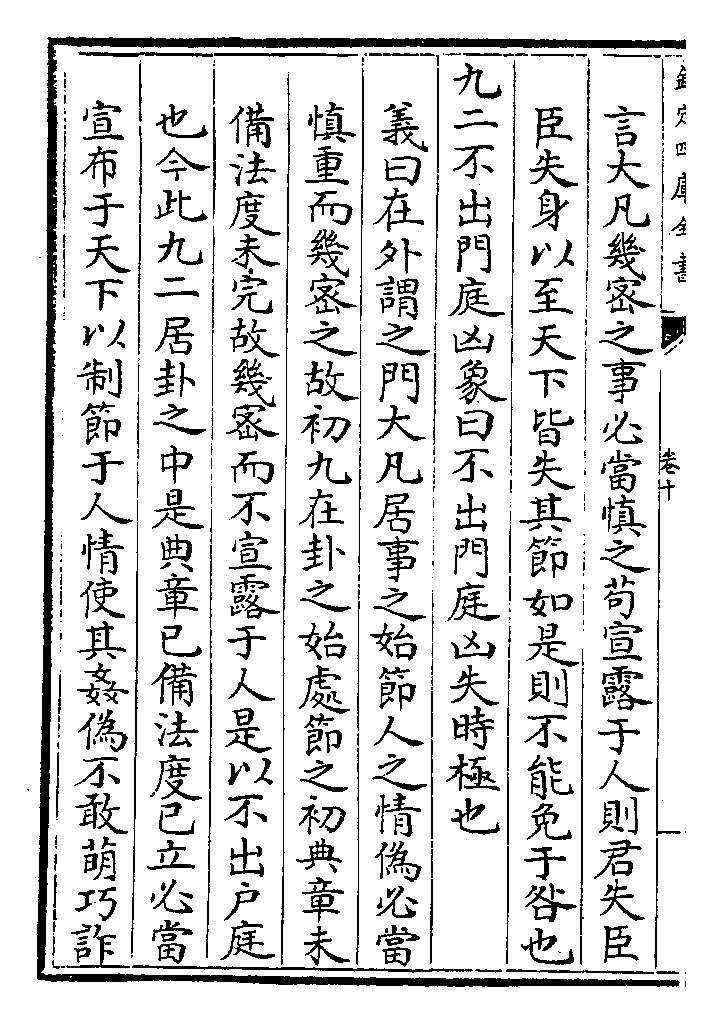 欽定四庫全書
卷十
言大凡幾宻之事必當慎之茍宣露于人則君失臣
臣失身以至天下皆失其節如是則不能免于咎也
九二不出門庭凶象曰不出門庭凶失時極也
義曰在外謂之門大凡居事之始節人之情偽必當
慎重而幾宻之故初九在卦之始處節之初典章未
備法度未完故幾宻而不宣露于人是以不出户庭
也今此九二居卦之中是典章已備法度已立必當
宣布于天下以制節于人情使其姦偽不敢萌巧詐